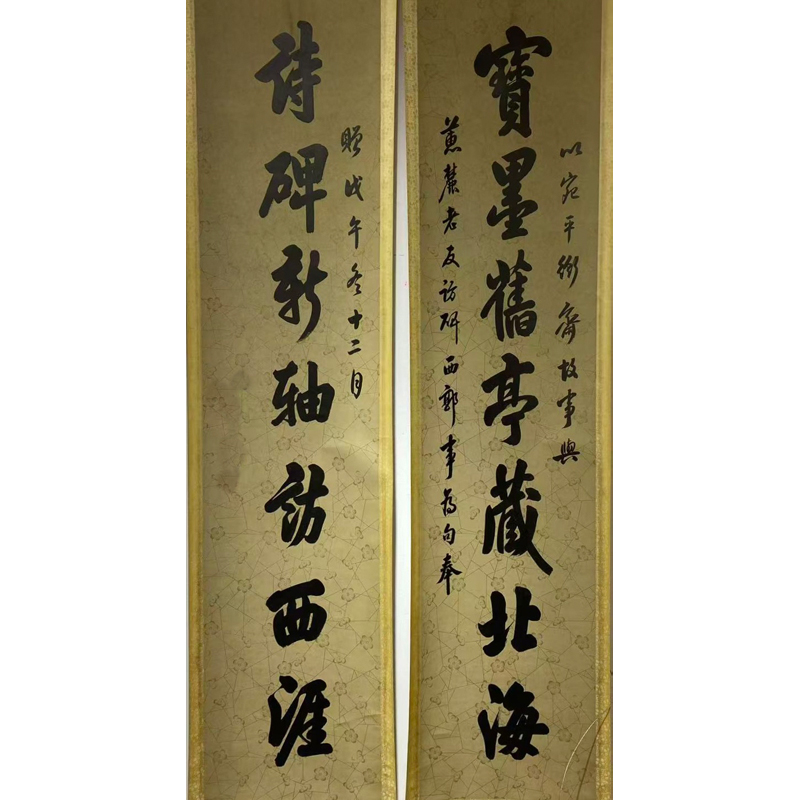 以宛平衙齋故事與
寶墨舊亭藏北海
蕙麓老友訪碑西郭事為句奉
贈戊午冬十二月
詩碑新軸訪西涯